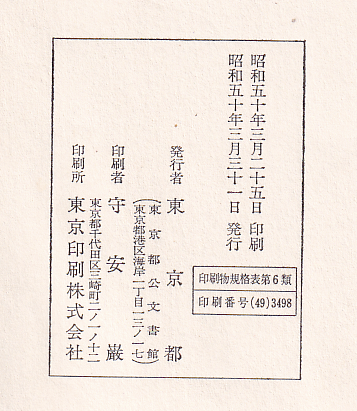 昭和五十年三月二十五日 印刷
昭和五十年三月三十一日 発行
印刷物規格表第6類
印刷番号(49)3498
発行者 東京都
(東京都公文書館)
(東京都港区海岸一丁目一三ノ一七)
印刷者 守安巌
東京都千代田区三崎町二ノ一ノ十二
印刷所 東京印刷株式会社